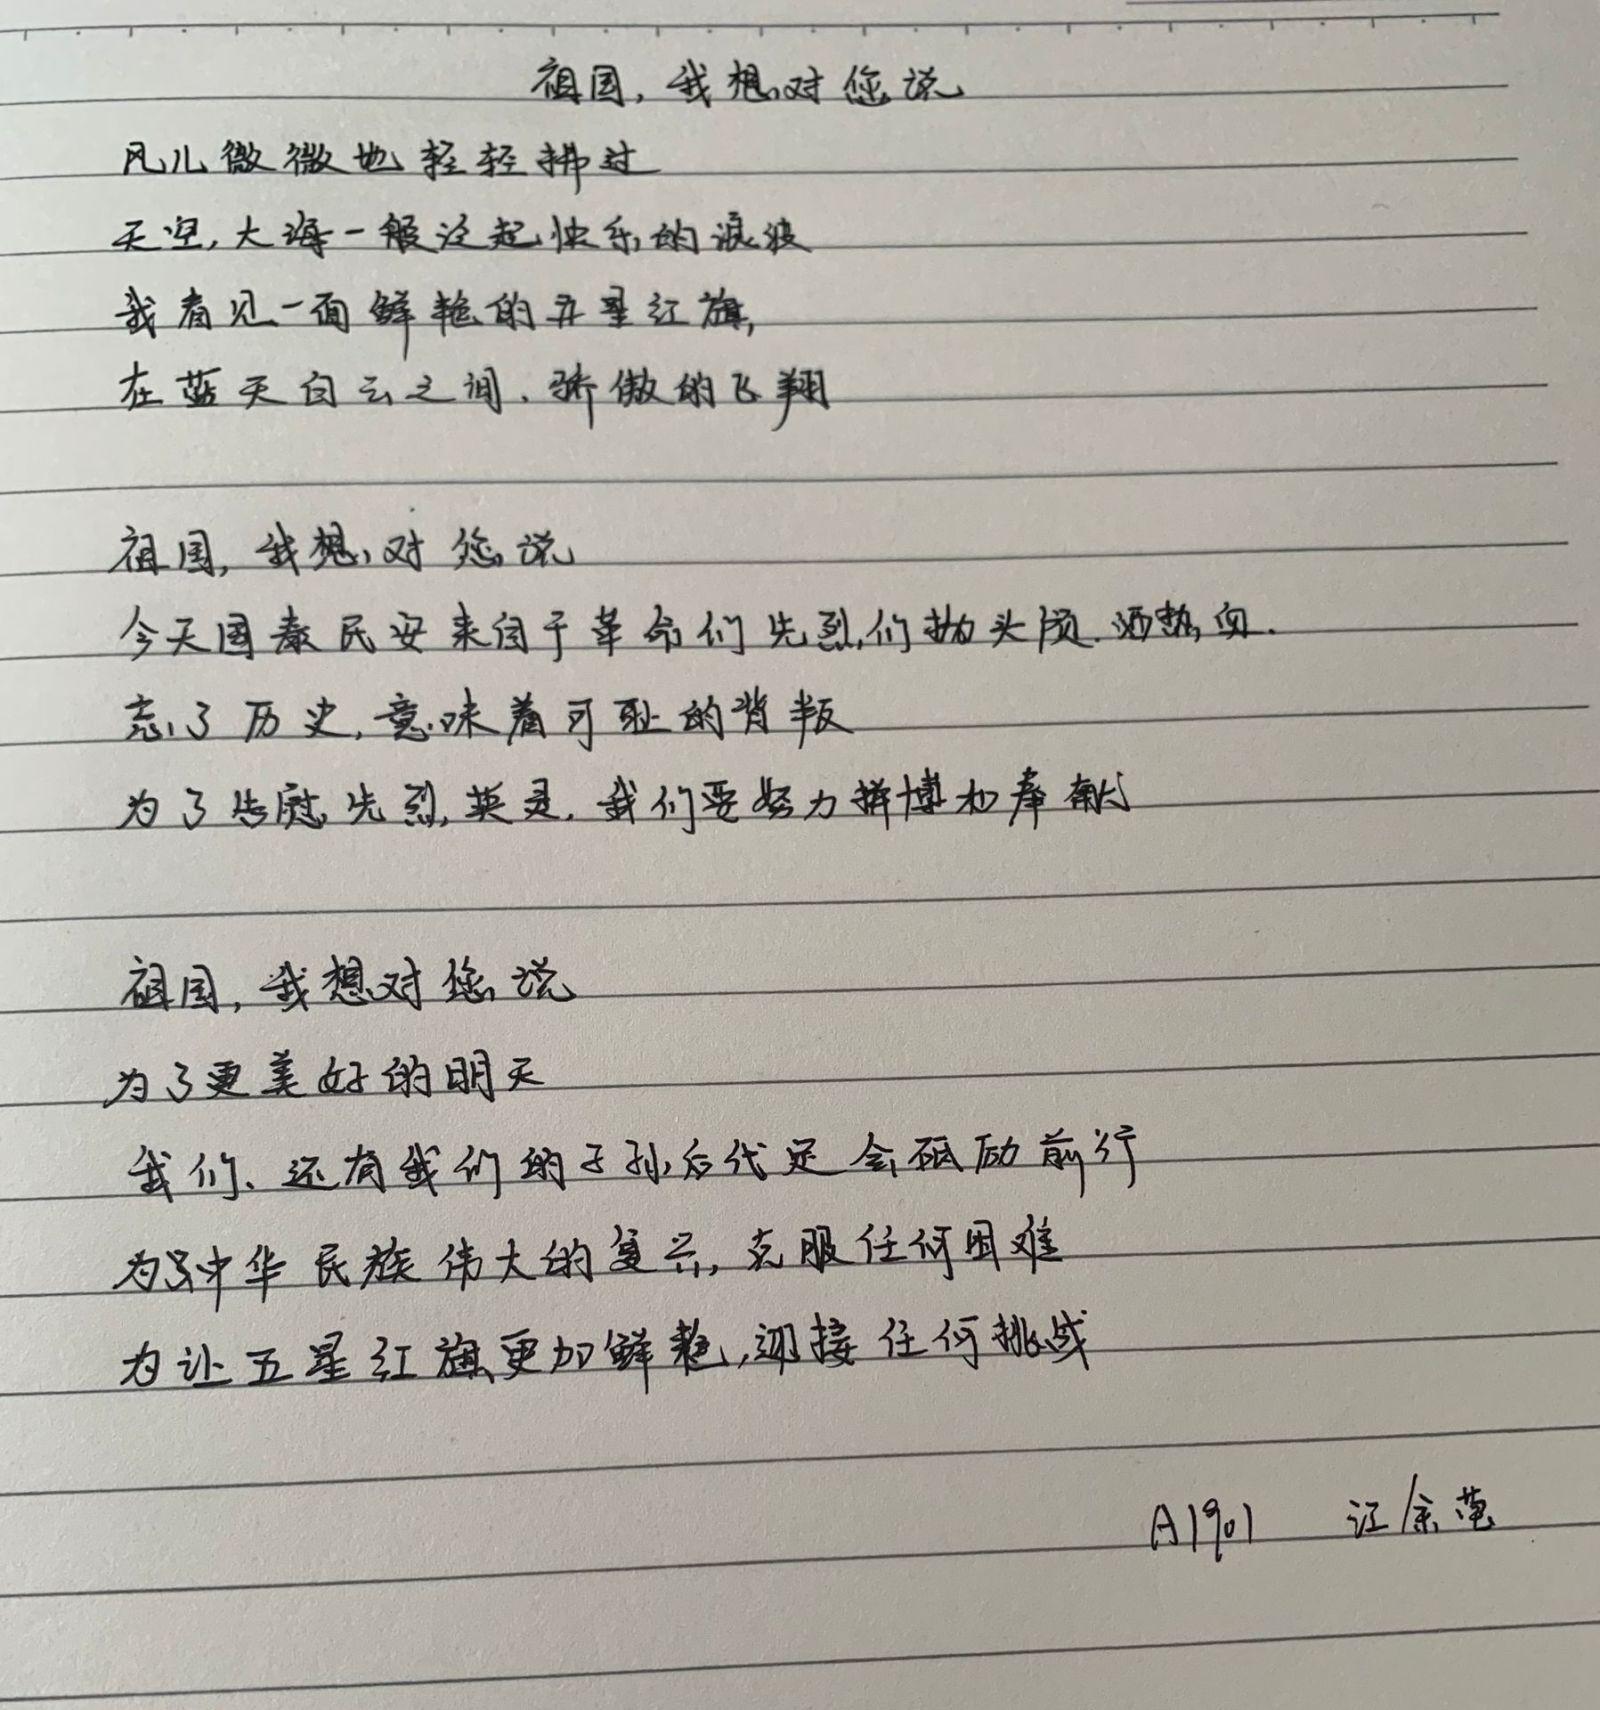 祖国，我想对您说
风儿微微地轻轻拂过
天空，大海一般泛起快乐的浪波
我看见一面鲜艳的五星红旗，
在蓝天白云之间，骄傲的飞翔
祖国，我想对您说
今天国泰民安来自于革命们先烈们抛头颅、洒热血.
忘了历史，意味着可耻的背叛
为了告慰先烈英灵，我们要努力拼博和奉献
祖国，我想对您说
为了更美好的明天
我们、还有我们的子孙后代定会砥励前行
为了中华民族伟大的复兴，克服任何困难
为让五星红旗更加鲜艳，迎接任何挑战
A1901 汪余莹